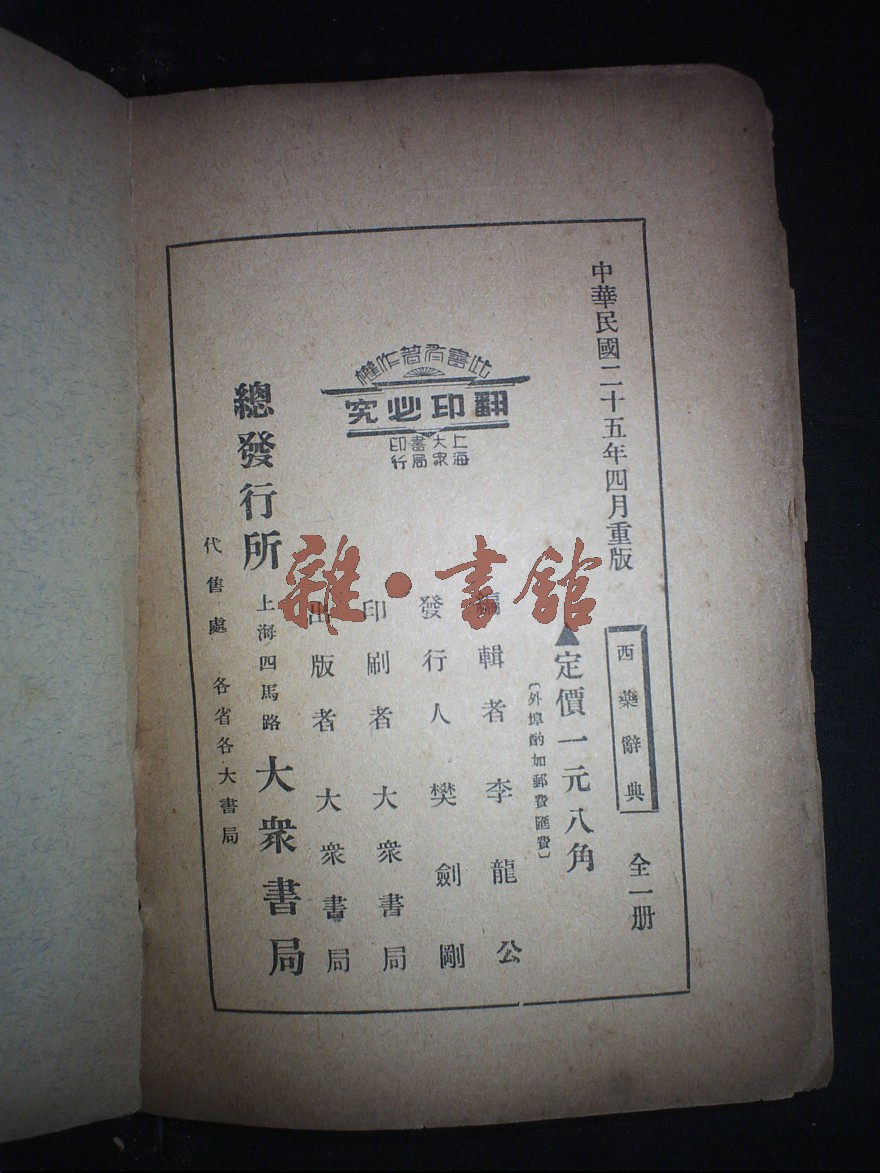 中華民國二十五年四月重版
西藥辭典
全一册
▲定價一元八角
〔外埠酌加郵費匯費〕
編輯者 李龍公
發行人 樊劍剛
印刷者 大衆書局
出版者 大衆書局
總發行所 上海四馬路 大衆書局
代售處 各省各大書局
此書有著作權
翻印必究
上海
大衆
書局
印行
雜·書館